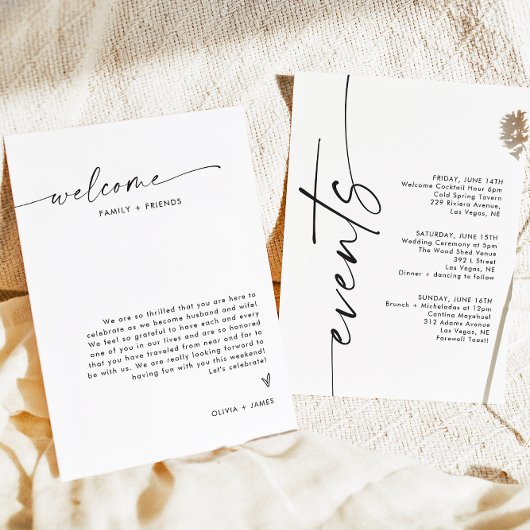 welcome
FAMILY + FRIENDS
We are so thrilled that you are here to
celebrate as we become husband and wife!
We feel so grateful to have each and every
one of you in our lives and are so honored
that you have traveled from near and far to
be with us. We are really looking forward to
having fun with you this weekend!
Let's celebrate!
OLIVIA + JAMES
events
FRIDAY, JUNE 14TH
Welcome Cocktail Hour 6pm
Cold Spring Tavern
229 Riviera Avenue,
Las Vegas, NE
SATURDAY, JUNE 15TH
Wedding Ceremony at 5pm
The Wood Shed Venue
392 L Street
Las Vegas, NE
Dinner + dancing to follow
SUNDAY, JUNE 16TH
Brunch + Micheladas at 12pm
Cantina Mayahuel
312 Adams Avenue
Las Vegas, NE
Farewell Toast!